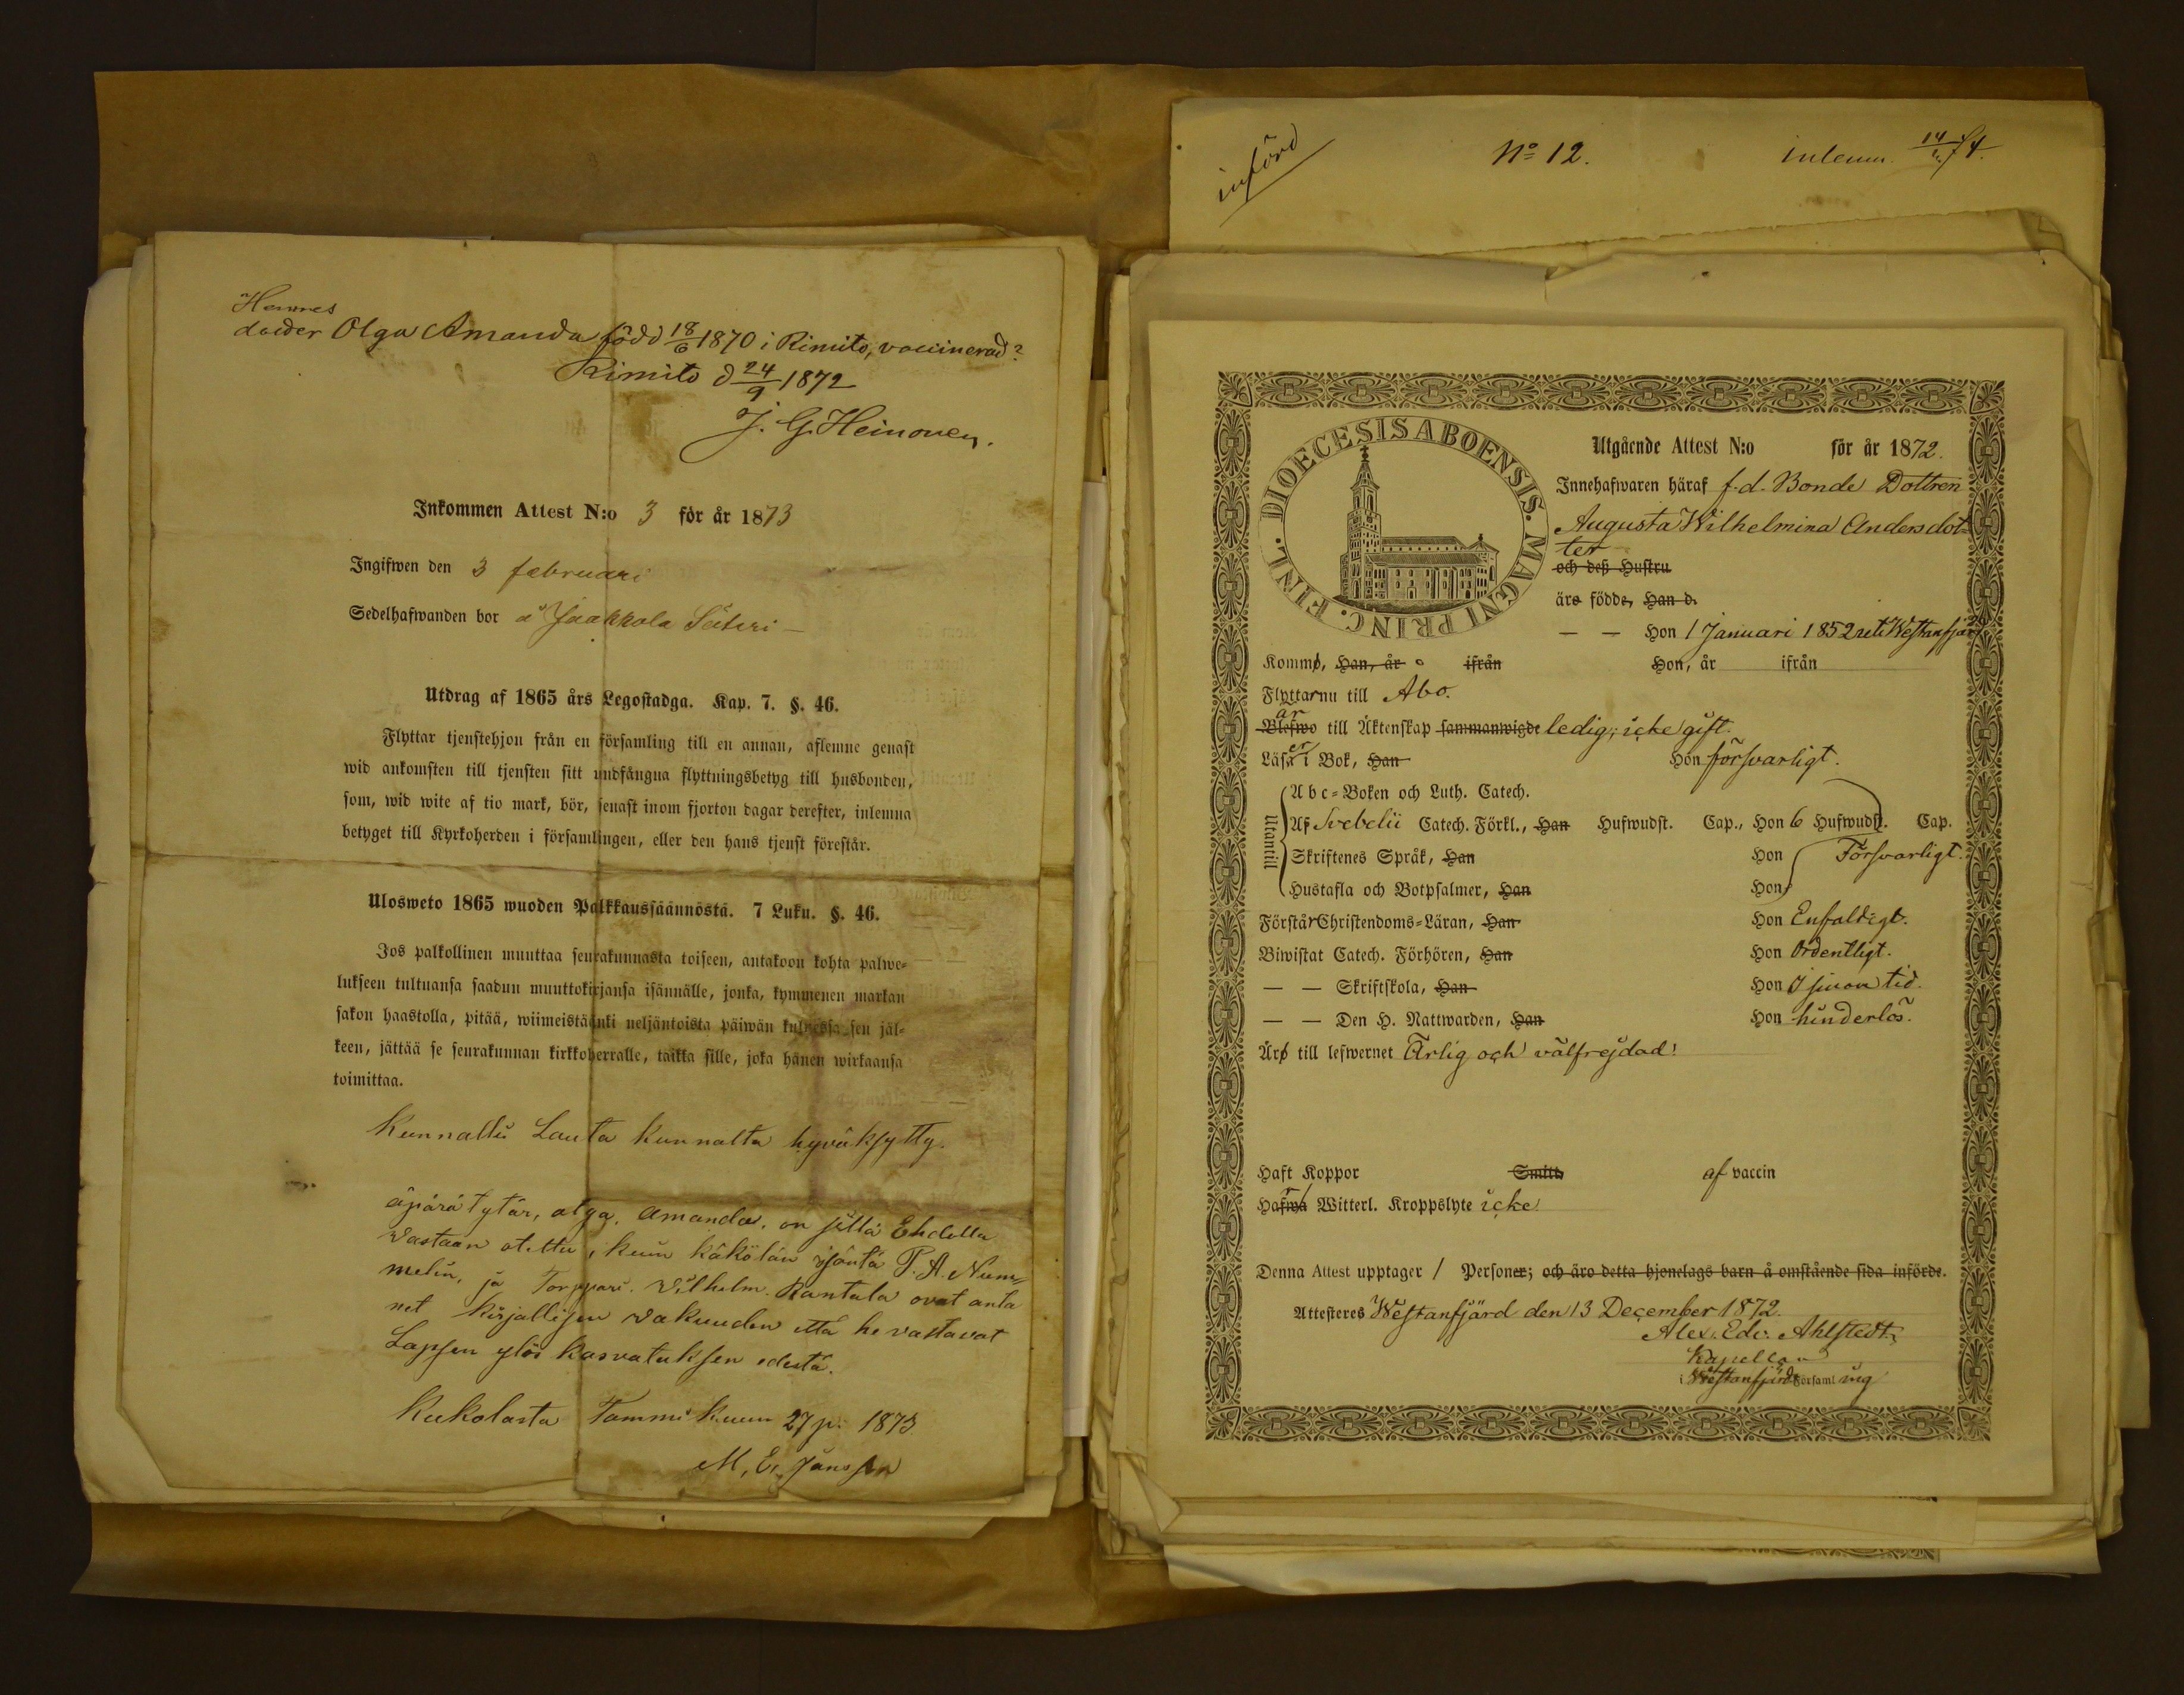 Hennes
dotter Olga Amanda född 18/6 1870 i Rimito, vaccinerad?
Rimito d 24/9 1872
J. G. Heinonen.
Inkommen Attest N:o 3 för år 1873
Ingifwen den 3 februari
Sedelhafwanden bor å Jaakkola Säteri —
Utdrag af 1865 års Legostadga. Kap. 7. §. 46.
Flyttar tjenstehjon från en församling till en annan, aflemne genast
wid ankomsten till tjensten sitt undfångna flyttningsbetyg till husbonden,
som, wid wite af tio mark, bör, senast inom fjorton dagar derefter, inlemna
betyget till Kyrkoherden i församlingen, eller den hans tjenst förestår.
Ulosweto 1865 wuoden Palkkaussäännöstä. 7 Luku. §. 46.
Jos palkollinen muuttaa seurakunnasta toiseen, antakoon kohta palwe-
lukseen tultuansa saadun muuttokirjansa isännälle, jonka, kymmenen markan
sakon haastolla, pitää, wiimeistäänki neljäntoista päiwän kuluessa sen jäl-
keen, jättää se seurakunnan kirkkoherralle, taikka sille, joka hänen wirkaansa
toimittaa.
Kunnallis Lauta kunnalta hyväksytty.
äpärä tytär, olga, amanda, on sillä Ehdolla
Vastaan otettu, kuin käkölän isäntä P. A. Num-
melin, ja Torppari. Vilhelm. Rantala ovat anta
net kirjallisen vakuuden että he vastavat
Lapsen ylös kasvatuksen edestä.
Kukolasta Tammi kuun 27 p: 1873
M, E, Jansson
införd
No 12.
inlemn. 14/ 74.
DIOECESIS ABOENSIS. MAGNI PRINC. FINL.
Utgående Attest N:o för år 1872.
Innehafwaren häraf f.d. Bonde Dottren
Augusta Wilhelmina Andersdot-
ter
och deß Hustru
äro födde, Han d.
— — Hon 1 Januari 1852 uti Westanfjärd
Komme, Han, år ifrån Hon, år ifrån
Flyttar nu till Åbo.
är
Blefwo till Äktenskap sammanwigde ledig, icke gift.
Läser i Bok, Han Hon försvarligt.
Utantill
Abc-Boken och Luth. Catech.
Af Svebelii Catech. Förkl., Han Hufwudst. Cap., Hon 6 Hufwudst. Cap.
Skriftenes Språk, Han Hon Försvarligt.
Hustafla och Botpsalmer, Han Hon
Förstår Christendoms-Läran, Han Hon Enfaldigt.
Biwistat Catech. Förhören, Han Hon Ordentligt.
— — Skriftskola, Han Hon I sinom tid.
— — Den H. Nattwarden, Han Hon hinderlös.
Äro till lefwernet Ärlig och välfrejdad!
Haft Koppor Smitt. af vaccin
Hafwa Witterl. Kroppslyte icke
Denna Attest upptager 1 Personer; och äro detta hjonelags barn å omstående sida införde.
Attesteres Westanfjärd den 13 December 1872.
Alex. Edv. Ahlstedt,
Kapellan
i Westanfjärds Församling